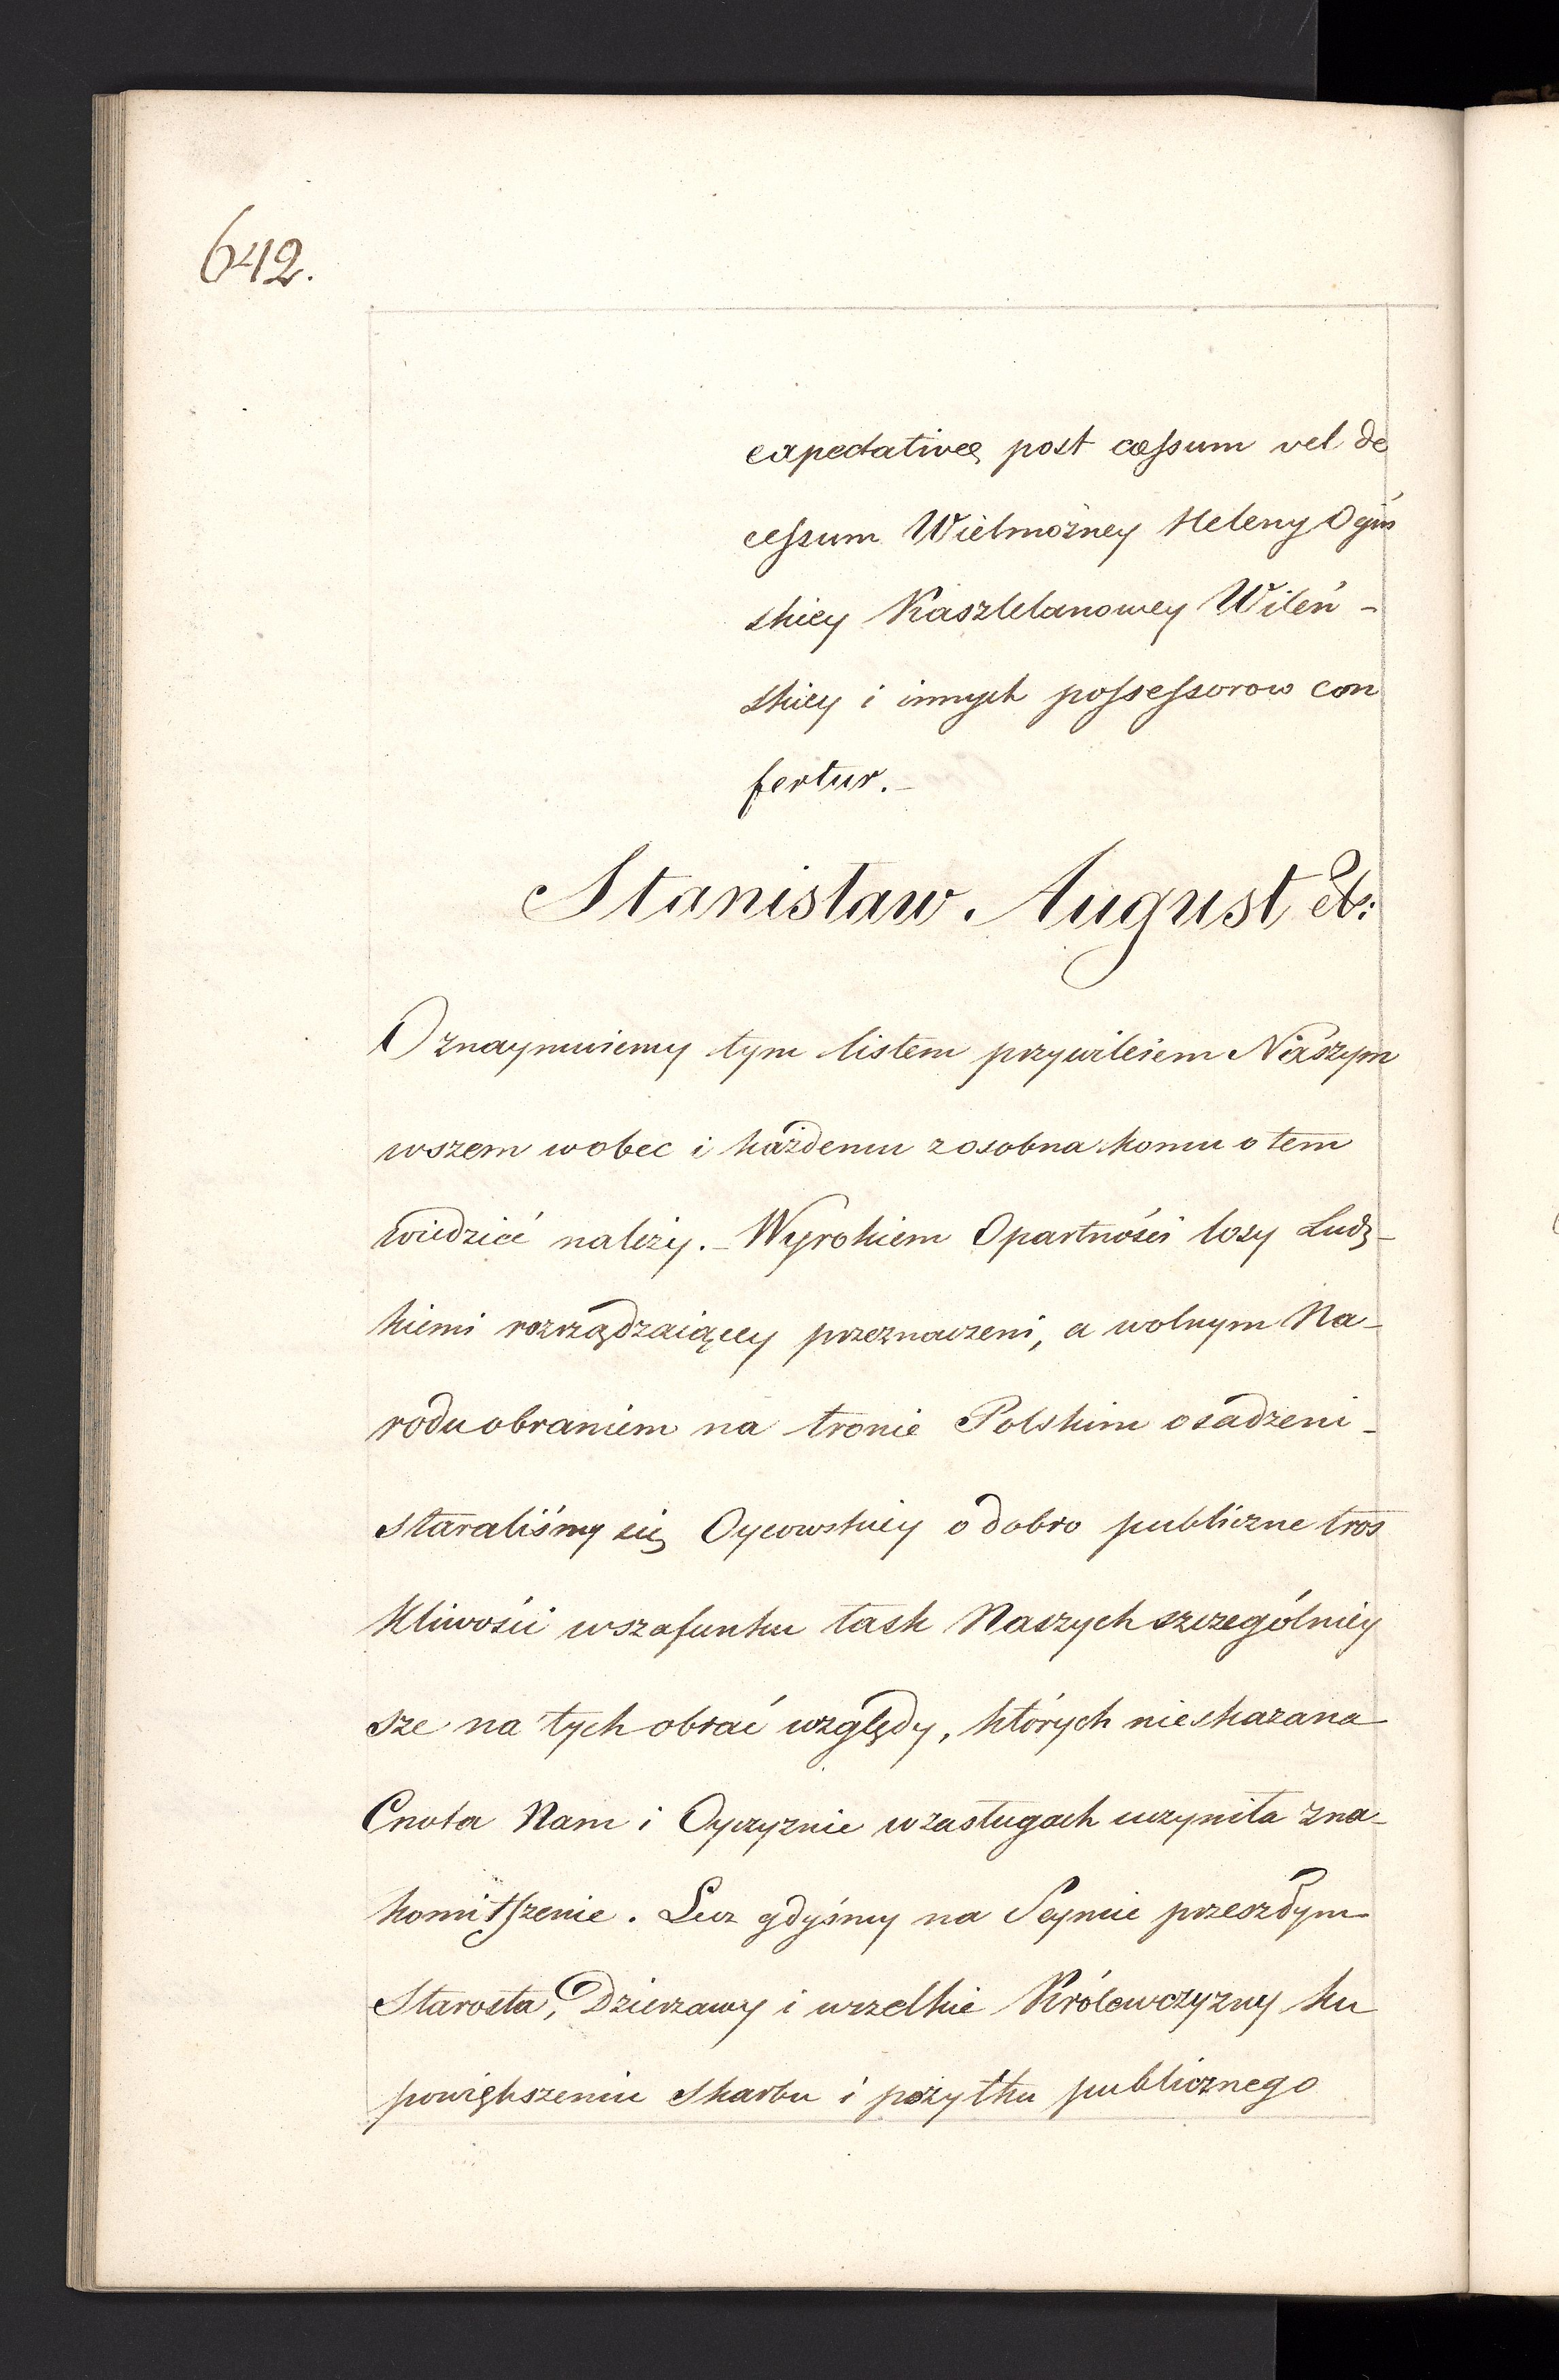 642.
expectativæ post cessum vel de
cessum Wielmożney Heleny Ogiń
skiey Kasztelanowey Wileń-
skiey i innych possessorow con
fertur.-
Stanisław August etc:
Oznaymuiemy tym listem przywileiem Naszym
wszem wobec i każdemu zosobna komu o tem
wiedzieć należy. - Wyrokiem Opartności losy Ludz-
kiemi rozrządzaiącey przeznaczeni, a wolnym Na-
rodu obraniem na tronie Polskim osadzeni -
staraliśmy się Oycowskiey o dobro publiczne tros
kliwości w szafunku łask Naszych szczególniey
sze na tych obrać względy, których nieskazana
Cnota Nam i Oyczyznie w zasługach uczyniła zna-
komitszenie. Lecz gdyśmy na Seymie przeszłym
Starosta, Dzierzawy i wszelkie Królewczyzny ku
powiększeniu Skarbu i pożytku publicznego